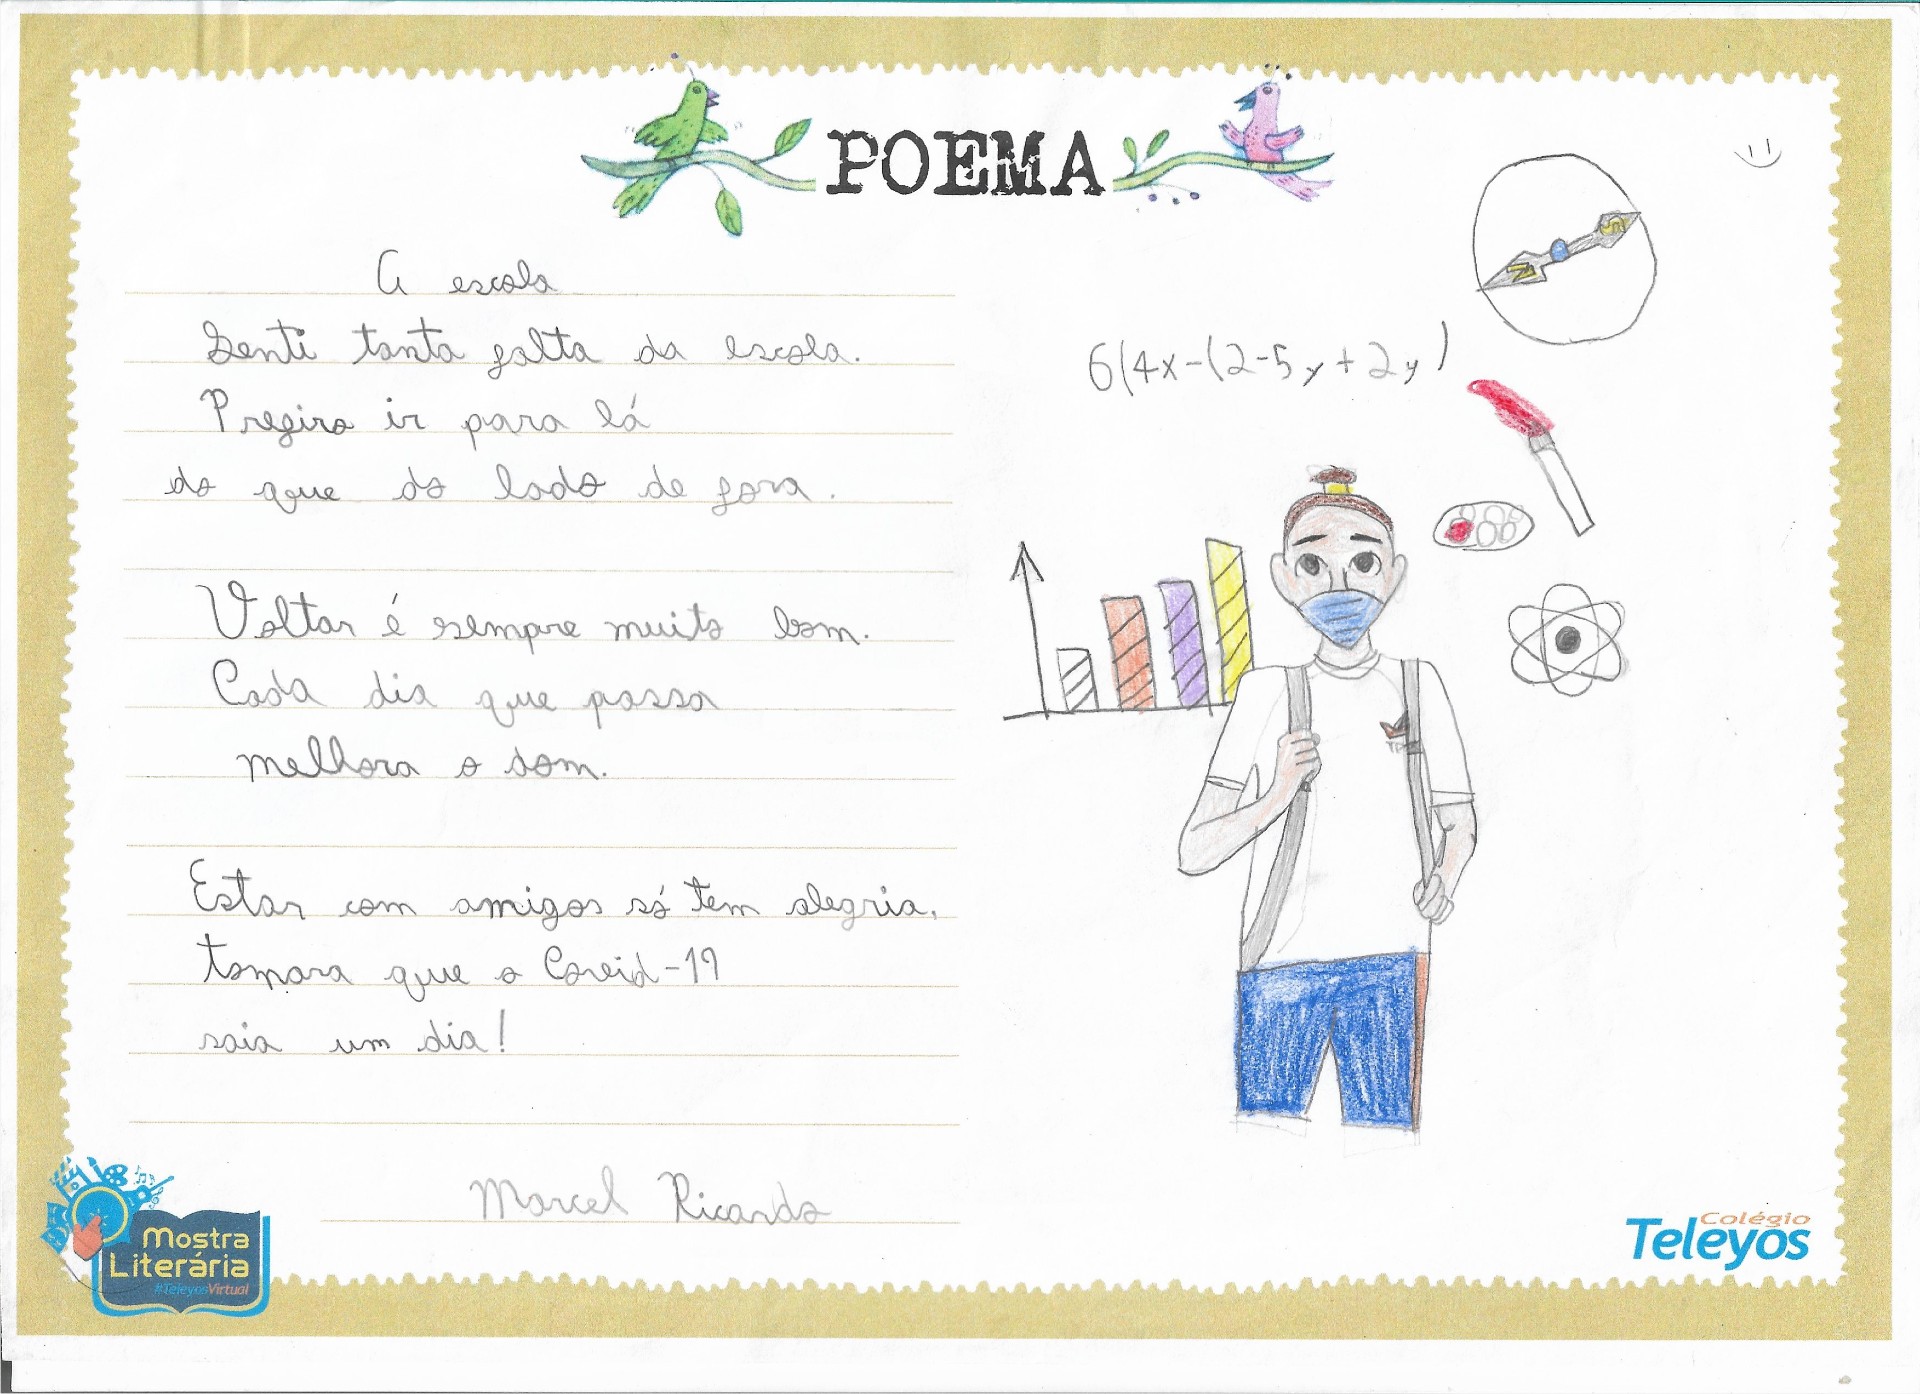 POEMA
A escola
Senti tanta falta da escola.
Prefiro ir para lá
do que do lado de fora.
Voltar é sempre muito bom.
Cada dia que passa
melhora o dom.
Estar com amigos só tem alegria,
tomara que o Covid-19
saia um dia!
Marcel Ricardo
6(4x-(2-5y+2y)
N
S
Mostra
Literária
#TeleyosVirtual
Colégio
Teleyos